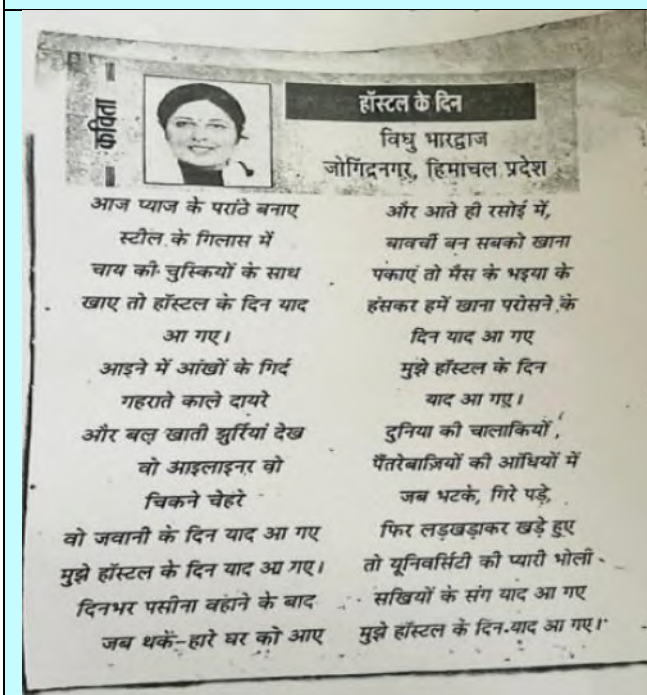 कविता
हॉस्टल के दिन
विधु भारद्वाज
जोगिंद्रनगर, हिमाचल प्रदेश
आज प्याज के परांठे बनाए
स्टील के गिलास में
चाय की चुस्कियों के साथ
खाए तो हॉस्टल के दिन याद
आ गए।
आइने में आंखों के गिर्द
गहराते काले दायरे
और बल खाती झुर्रियां देख
वो आइलाइनर वो
चिकने चेहरे
वो जवानी के दिन याद आ गए
मुझे हॉस्टल के दिन याद आ गए।
दिनभर पसीना बहाने के बाद
जब थके-हारे घर को आए
और आते ही रसोई में,
बावर्ची बन सबको खाना
पकाएं तो मैस के भइया के
हंसकर हमें खाना परोसने के
दिन याद आ गए
मुझे हॉस्टल के दिन
याद आ गए।
दुनिया की चालाकियों,
पैंतरेबाज़ियों की आंधियों में
जब भटके, गिरे पड़े,
फिर लड़खड़ाकर खड़े हुए
तो यूनिवर्सिटी की प्यारी भोली-
सखियों के संग याद आ गए
मुझे हॉस्टल के दिन याद आ गए।